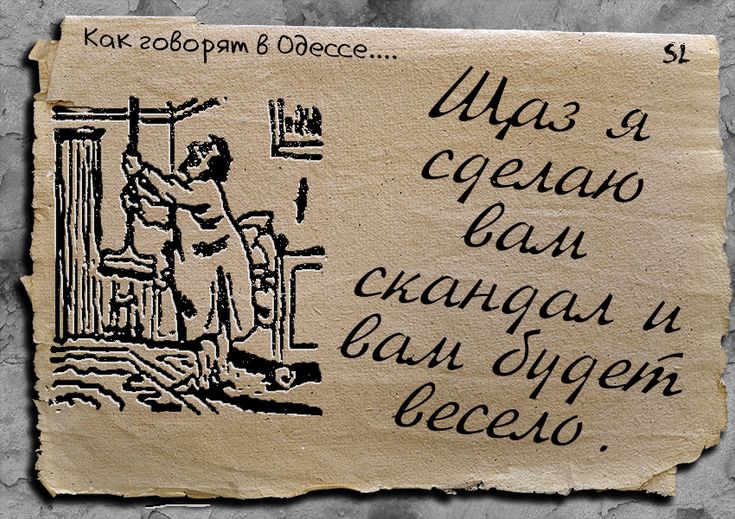 Как говорят в Одессе....
SL
Щаз я
сделаю
вам
скандал и
вам будет
весело.